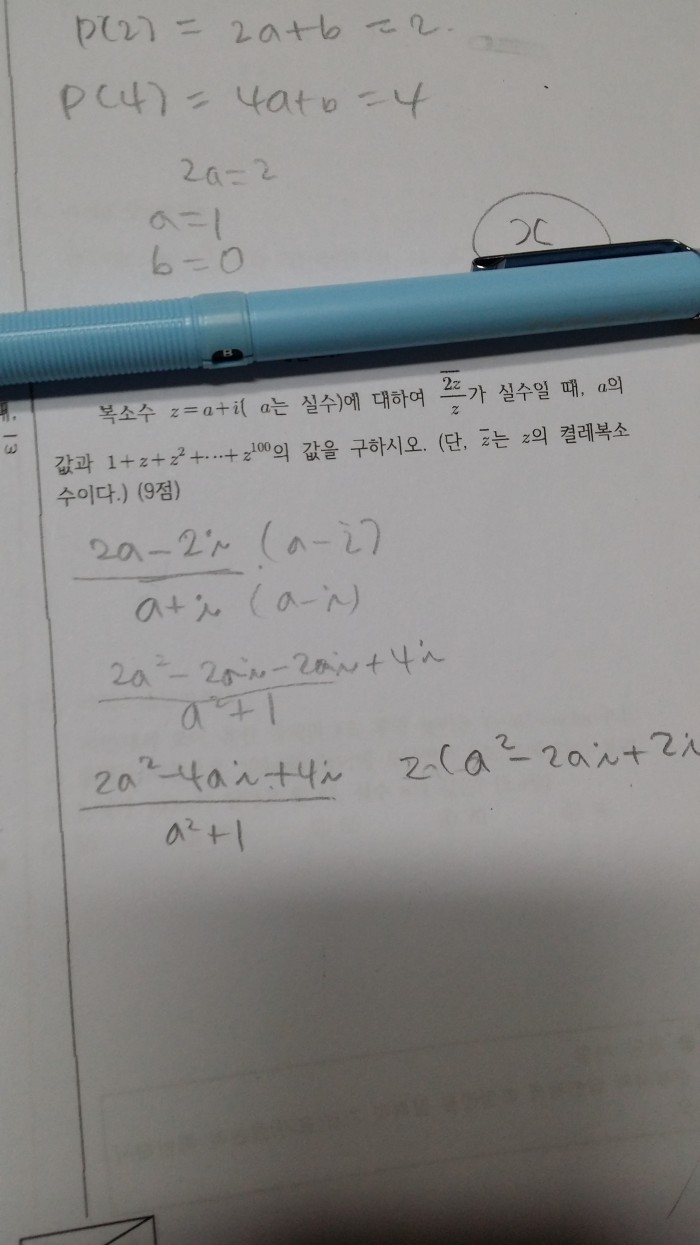 P(2) = 2a+b = 2.
P(4) = 4a+b = 4
2a=2
a=1
b=0
x
B
복소수 z=a+i( a는 실수)에 대하여 \frac{\overline{2z}}{z}가 실수일 때, a의
값과 1+z+z²+⋯+z¹⁰⁰의 값을 구하시오. (단, z̄는 z의 켤레복소
수이다.) (9점)
2a-2i (a-i)
a+i (a-i)
2a²-2ai-2ai+4i
a²+1
2a²-4ai+4i 2(a²-2ai+2i
a²+1